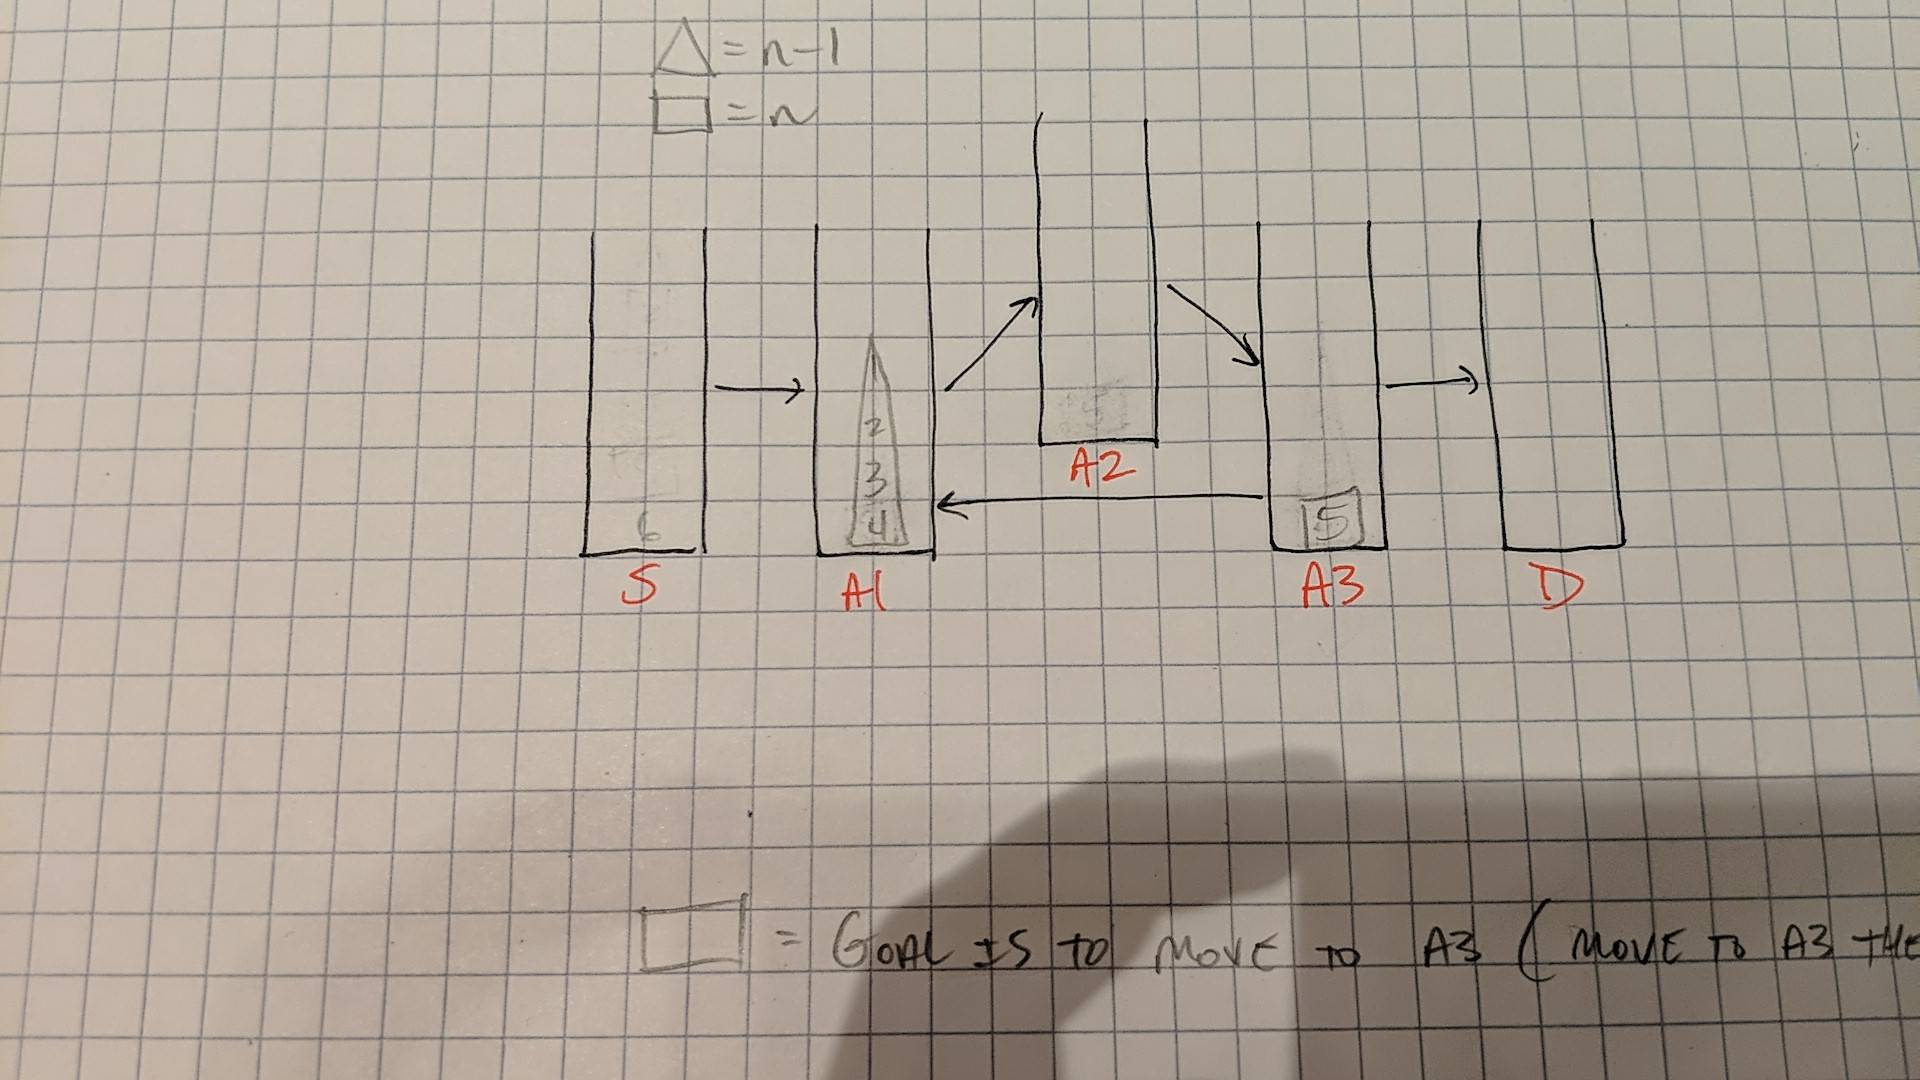 △ = n-1
□ = n
2
3
4
5
6
S
A1
A2
A3
D
□ = GOAL IS TO MOVE TO A3 (MOVE TO A3 THE